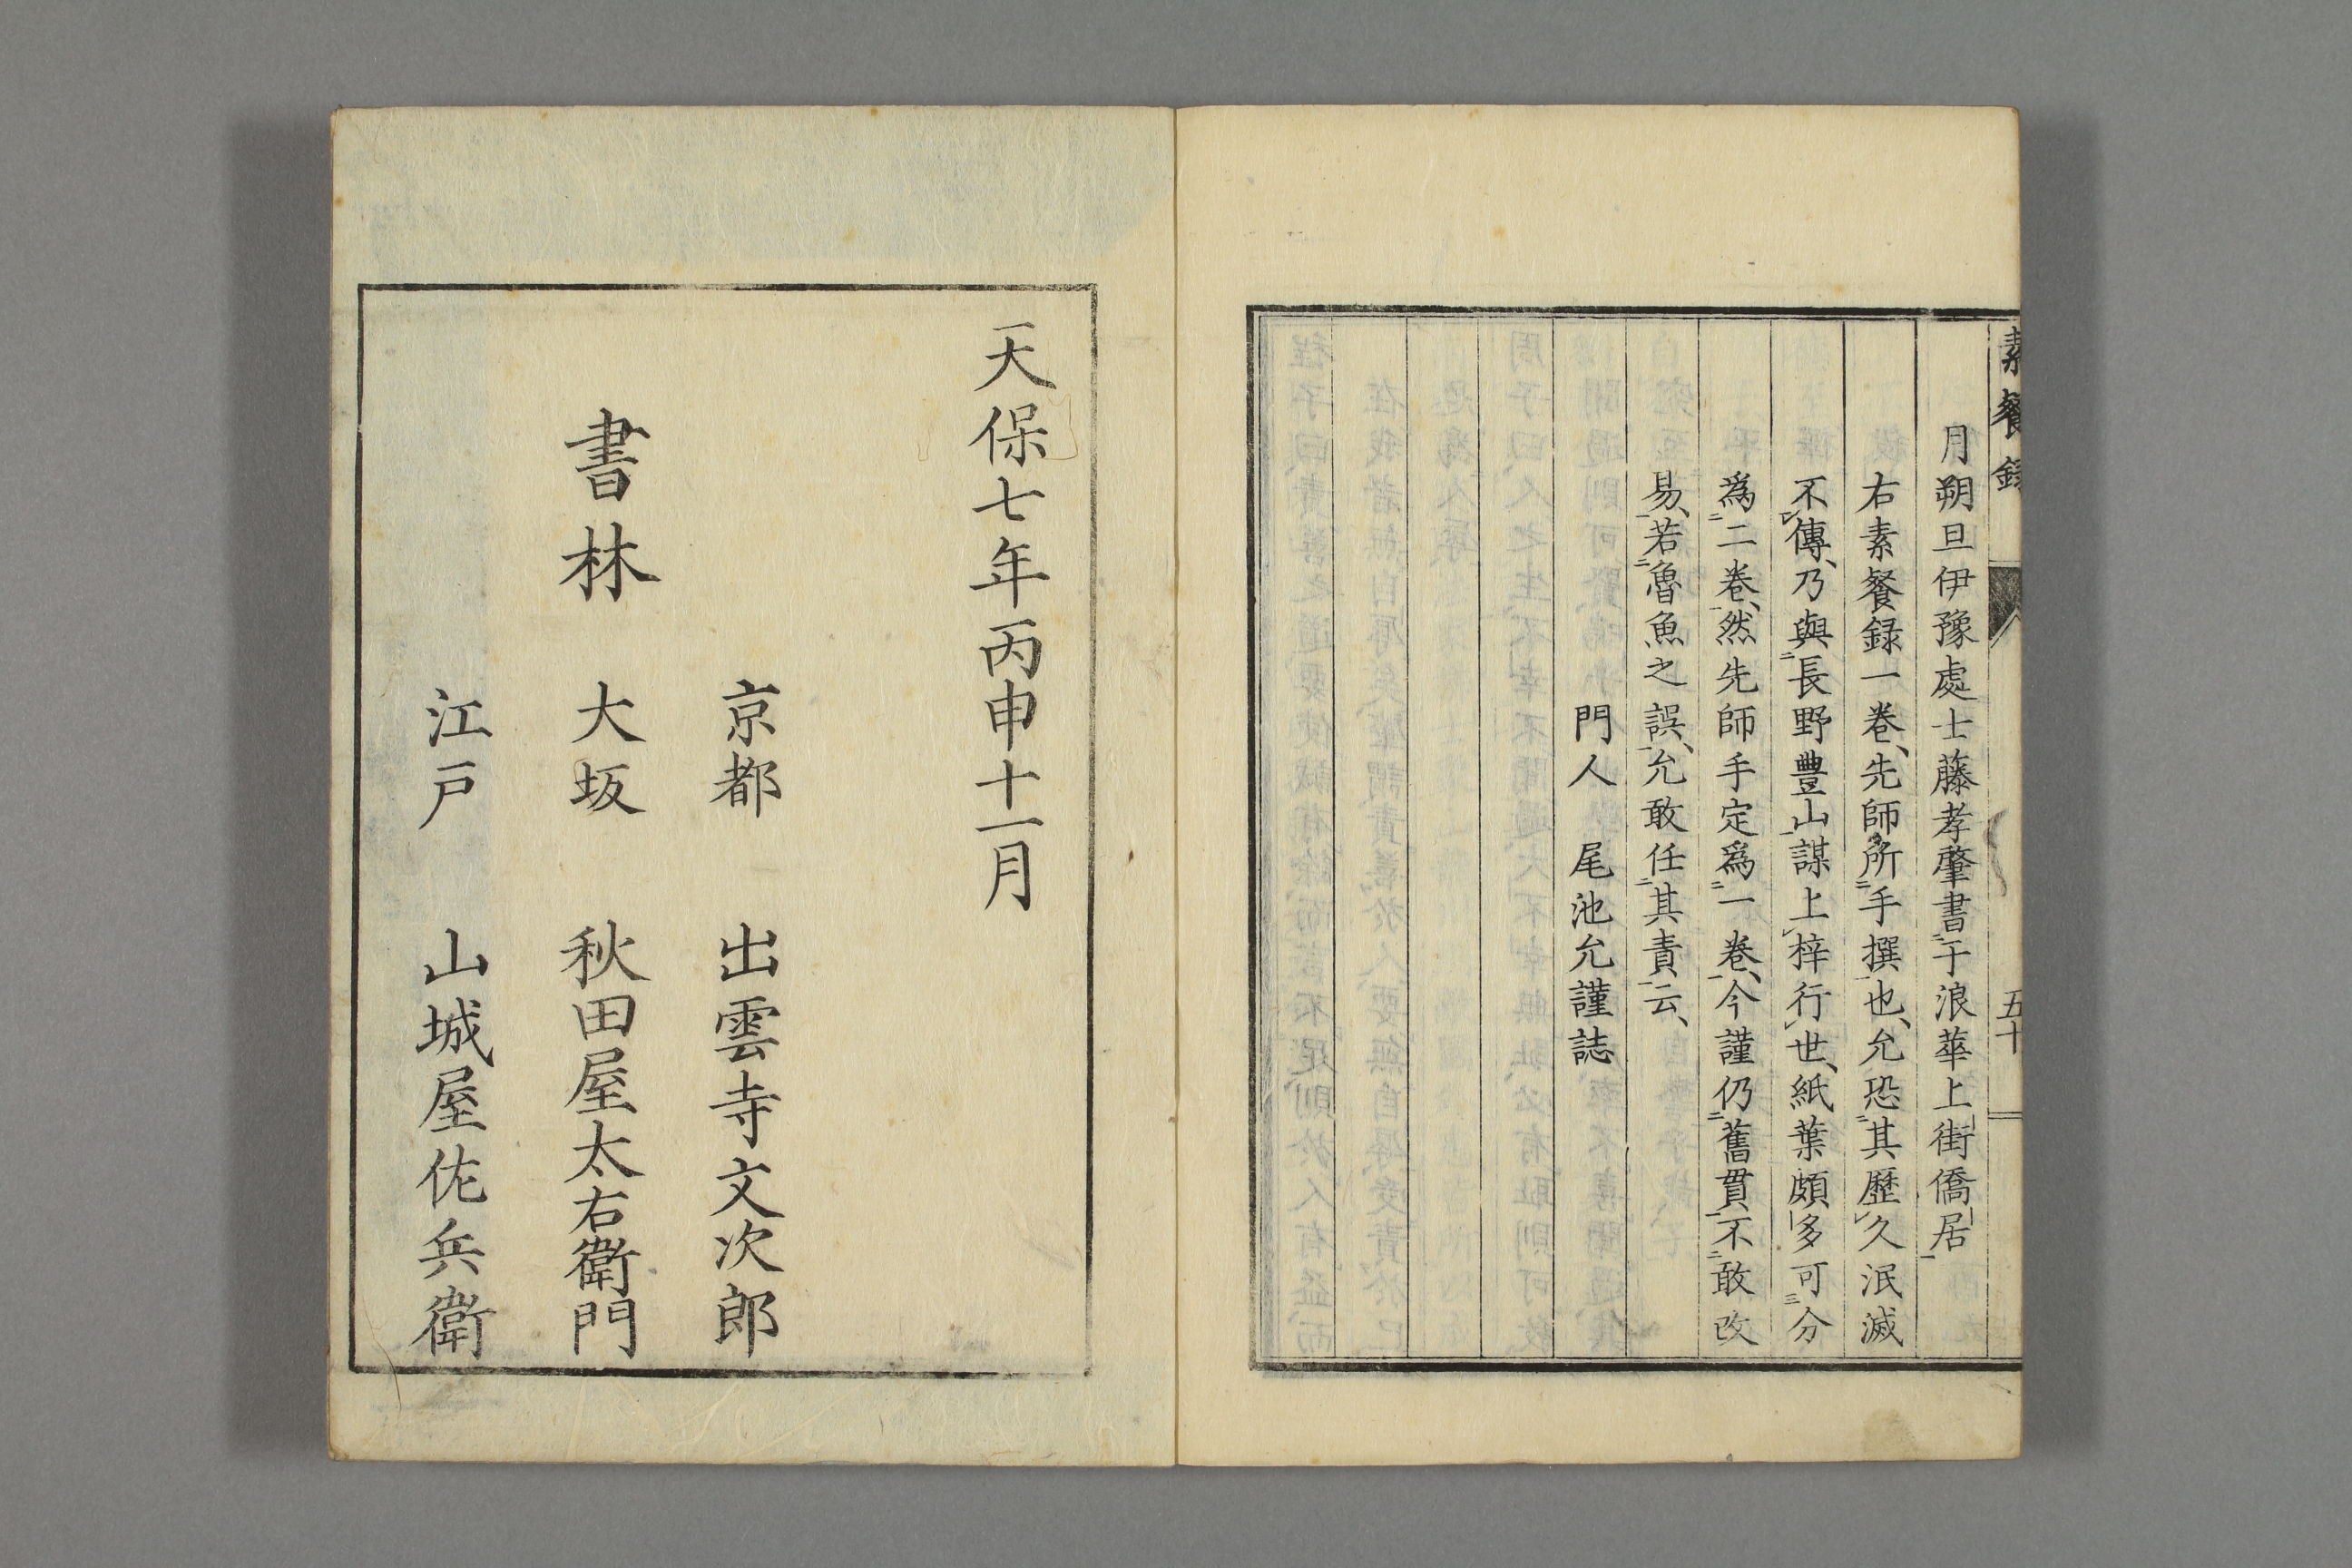 素餐録
五十
月朔旦伊豫處士藤孝肇書于浪華上街僑居
右素餐録一卷、先師所手撰也、允恐其歷久泯滅
不傳、乃與長野豐山謀上梓行世、紙葉頗多可分
爲二卷、然先師手定爲一卷、今謹仍舊貫不敢改
易、若魯魚之誤、允敢任其責云、
門人 尾池允謹誌
天保七年丙申十一月
京都 出雲寺文次郎
書林 大坂 秋田屋太右衛門
江戸 山城屋佐兵衛